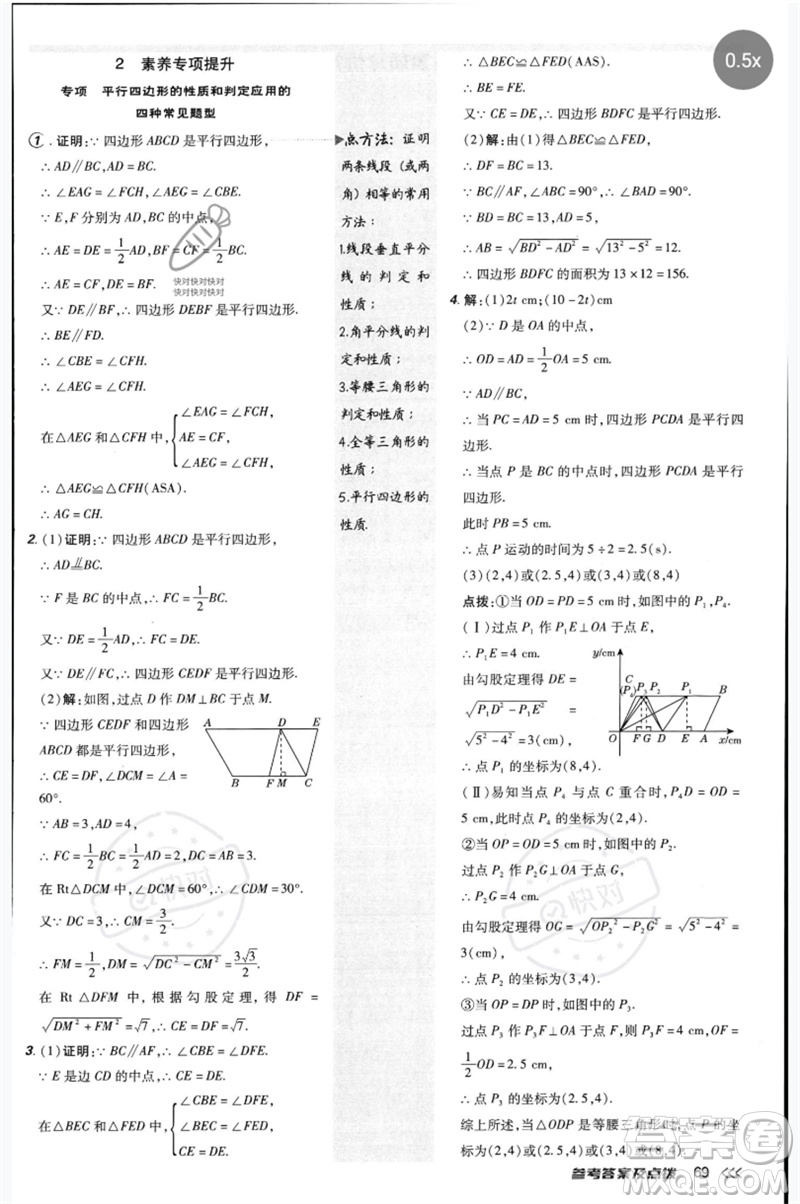 2 素养专项提升
专项 平行四边形的性质和判定应用的
四种常见题型
1.证明:∵四边形 ABCD 是平行四边形,
∴AD∥BC,AD=BC.
∴∠EAG=∠FCH,∠AEG=∠CBE.
∵E,F 分别为 AD,BC 的中点,
∴AE=DE=1/2AD,BF=CF=1/2BC.
∴AE=CF,DE=BF.
又∵DE∥BF,∴四边形 DEBF 是平行四边形.
∴BE∥FD.
∴∠CBE=∠CFH.
∴∠AEG=∠CFH.
在△AEG 和△CFH 中,{∠EAG=∠FCH,
AE=CF,
∠AEG=∠CFH,
∴△AEG≌△CFH(ASA).
∴AG=CH.
2.(1)证明:∵四边形 ABCD 是平行四边形,
∴AD∥=BC.
∵F 是 BC 的中点,∴FC=1/2BC.
又∵DE=1/2AD,∴FC=DE.
又∵DE∥FC,∴四边形 CEDF 是平行四边形.
(2)解:如图,过点 D 作 DM⊥BC 于点 M.
∵四边形 CEDF 和四边形
ABCD 都是平行四边形,
∴CE=DF,∠DCM=∠A=
60°.
A D E
B F M C
∵AB=3,AD=4,
∴FC=1/2BC=1/2AD=2,DC=AB=3.
在 Rt△DCM 中,∠DCM=60°,∴∠CDM=30°.
又∵DC=3,∴CM=3/2.
∴FM=1/2,DM=√(DC²-CM²)=3√3/2.
在 Rt△DFM 中,根据勾股定理,得 DF=
√(DM²+FM²)=√7,∴CE=DF=√7.
3.(1)证明:∵BC∥AF,∴∠CBE=∠DFE.
∵E 是边 CD 的中点,∴CE=DE.
在△BEC 和△FED 中,{∠CBE=∠DFE,
∠BEC=∠FED,
CE=DE.
点方法:证明
两条线段(或两
角)相等的常用
方法:
1.线段垂直平分
线的判定和
性质;
2.角平分线的判
定和性质;
3.等腰三角形的
判定和性质;
4.全等三角形的
性质;
5.平行四边形的
性质.
∴△BEC≌△FED(AAS).
∴BE=FE.
又∵CE=DE,∴四边形 BDFC 是平行四边形.
(2)解:由(1)得△BEC≌△FED,
∴DF=BC=13.
∵BC∥AF,∠ABC=90°,∴∠BAD=90°.
∵BD=BC=13,AD=5,
∴AB=√(BD²-AD²)=√(13²-5²)=12.
∴四边形 BDFC 的面积为 13×12=156.
4.解:(1)2t cm;(10-2t)cm
(2)∵D 是 OA 的中点,
∴OD=AD=1/2OA=5 cm.
又∵AD∥BC,
∴当 PC=AD=5 cm 时,四边形 PCDA 是平行四
边形.
∴当点 P 是 BC 的中点时,四边形 PCDA 是平行
四边形.
此时 PB=5 cm.
∴点 P 运动的时间为 5÷2=2.5(s).
(3)(2,4)或(2.5,4)或(3,4)或(8,4)
点拨:①当 OD=PD=5 cm 时,如图中的 P₁,P₄.
(Ⅰ)过点 P₁ 作 P₁E⊥OA 于点 E,
∴P₁E=4 cm.
由勾股定理得 DE=
√(P₁D²-P₁E²) =
√(5²-4²)=3(cm),
y/cm
C
(P₄) P₂ P₃ P₁ B
O F G D E A x/cm
∴点 P₁ 的坐标为(8,4).
(Ⅱ)易知当点 P₄ 与点 C 重合时,P₄D=
5 cm,此时点 P₄ 的坐标为(2,4).
②当 OP=OD=5 cm 时,如图中的 P₂.
过点 P₂ 作 P₂G⊥OA 于点 G,
∴P₂G=4 cm.
由勾股定理得 OG=√(OP₂²-P₂G²)=√(5²-4²)
=3(cm),
∴点 P₂ 的坐标为(3,4).
③当 OP=DP 时,如图中的 P₃.
过点 P₃ 作 P₃F⊥OA 于点 F,则 P₃F=4 cm,OF=
1/2OD=2.5 cm,
∴点 P₃ 的坐标为(2.5,4).
综上所述,当△ODP 是等腰三角形时,点 P 的坐
标为(2,4)或(2.5,4)或(3,4)或(8,4).
参考答案及点拨 69
0.5x
快对快对快对
快对快对快对
快对
快对
答案圈
MXQE.COM